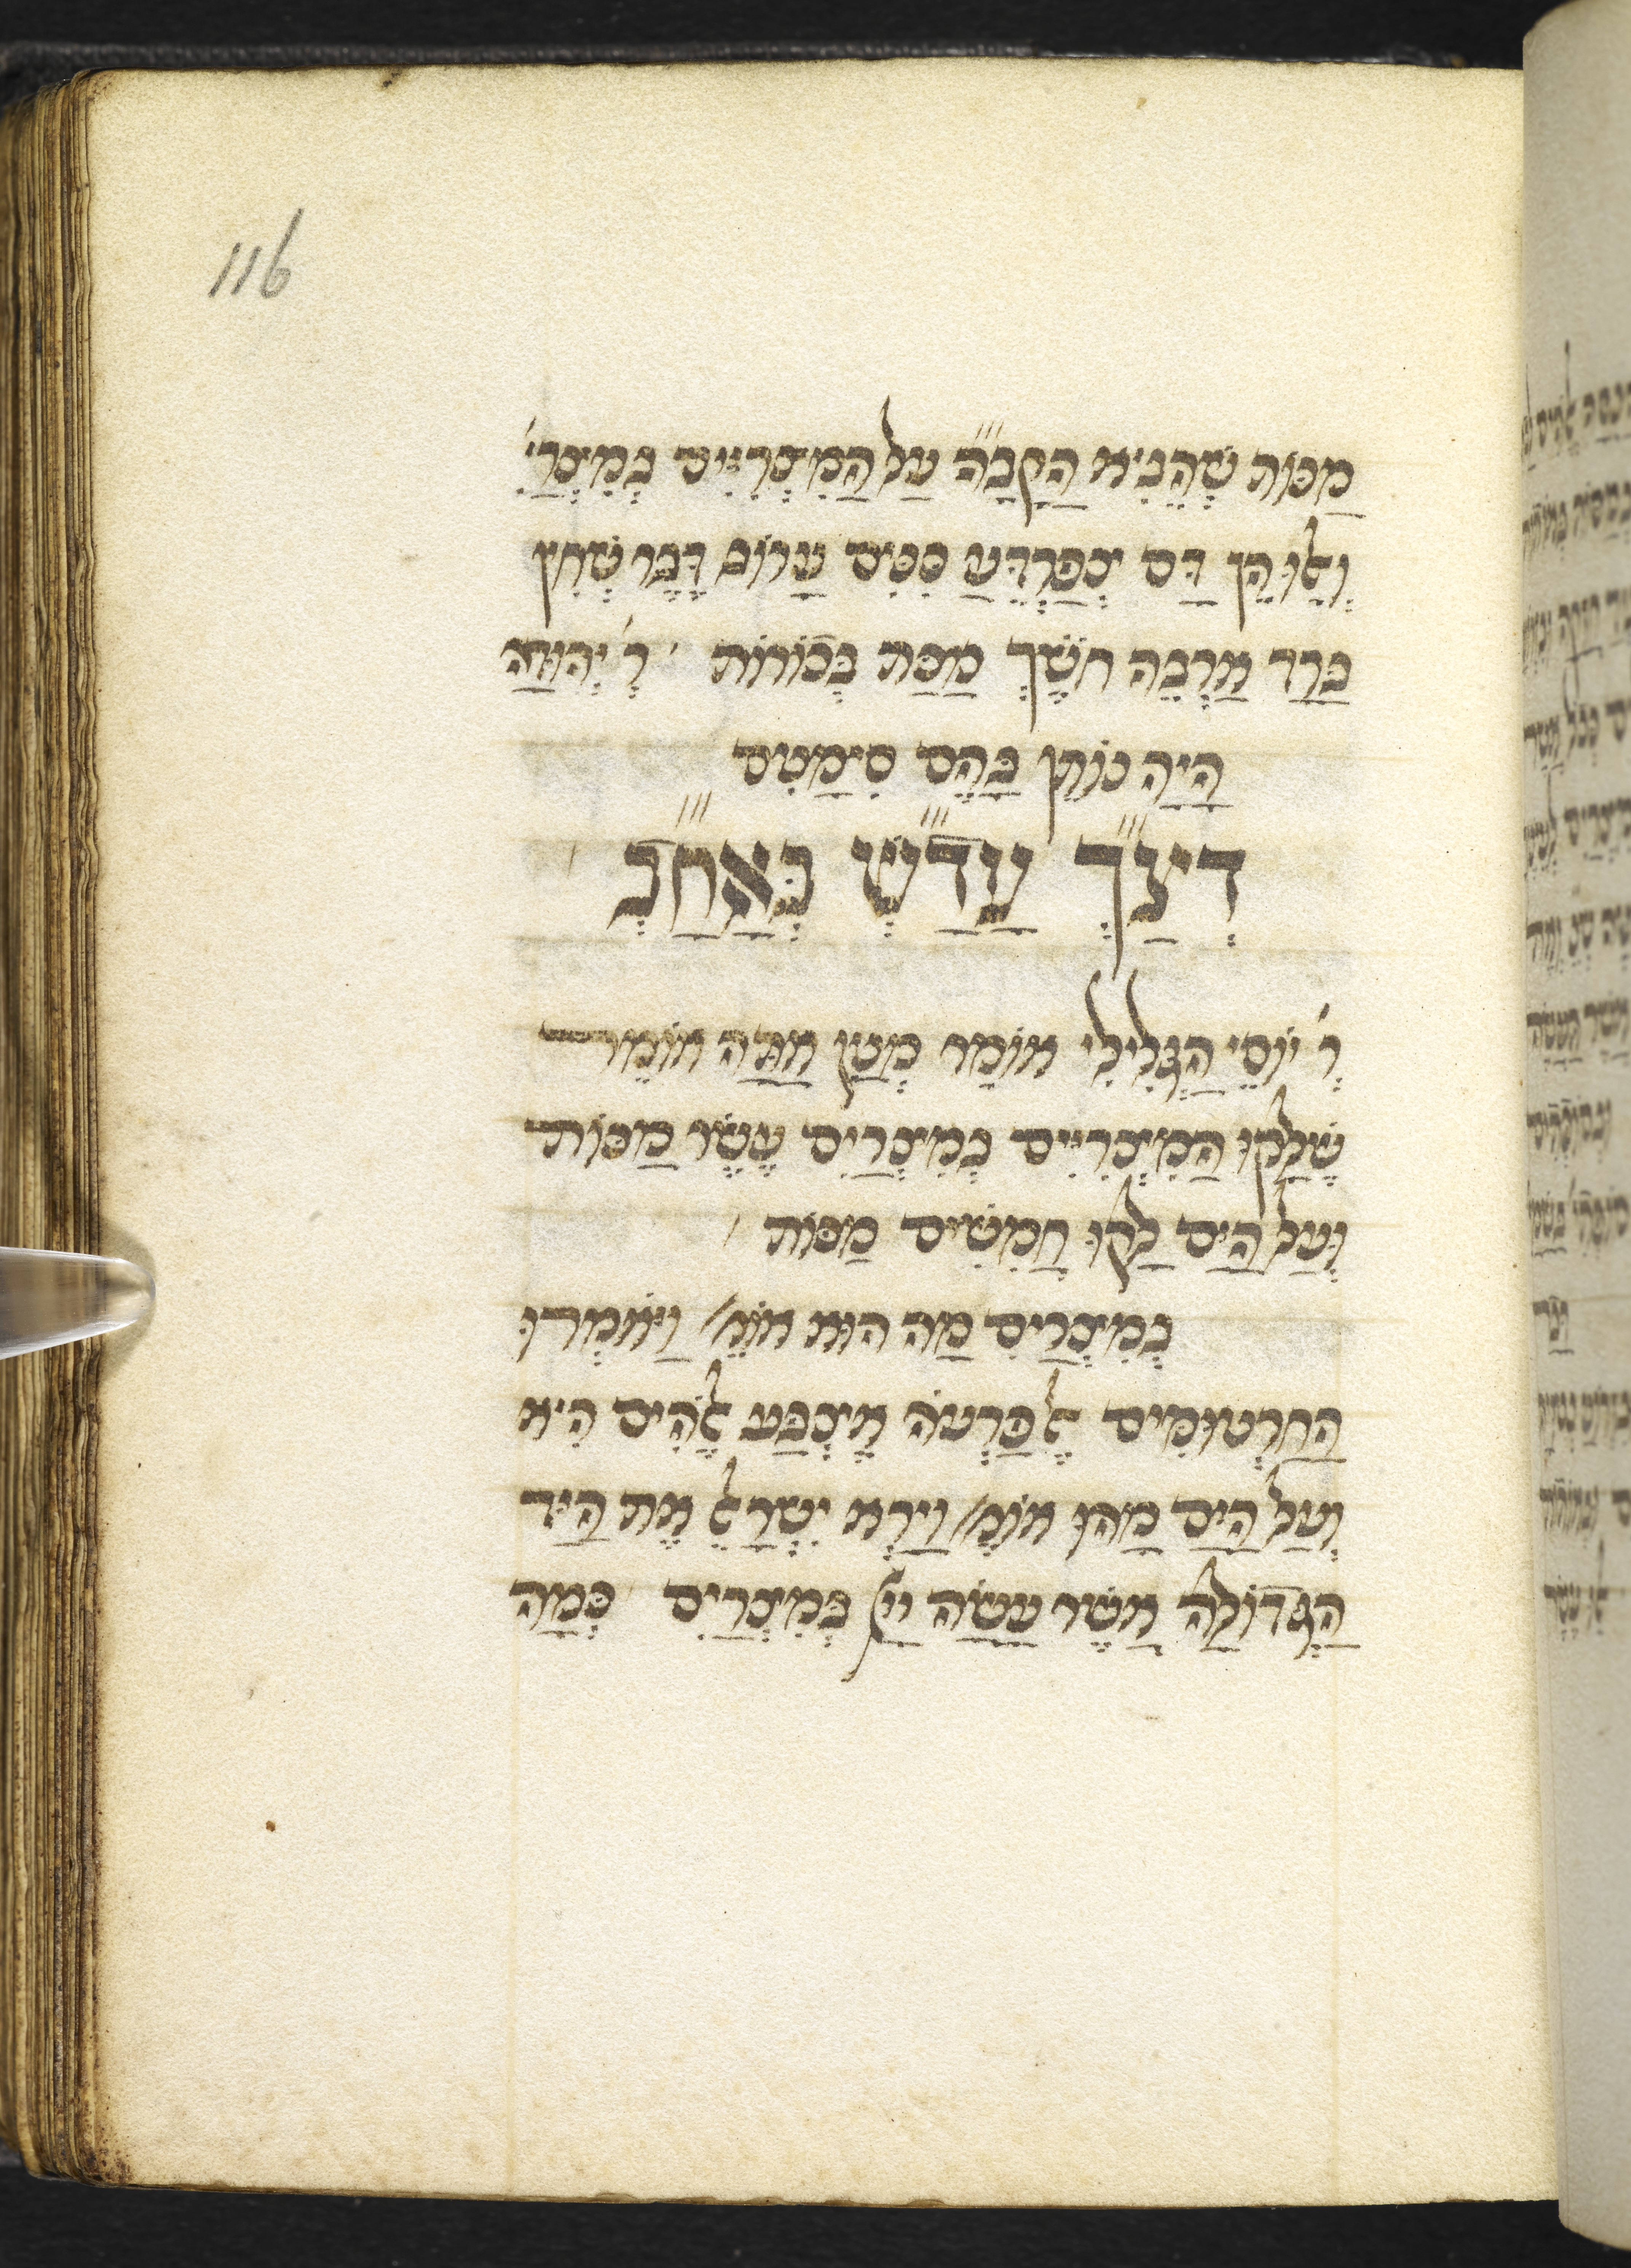 116
מַכּוֹת שֶׁהֵבִיא הַקָבָּ״ה עַל הַמִצְרִיִים בְּמִצְרַ׳
וְלוּ הֵן דַּם צְפַרְדֵּעַ כִּנִּים עָרוֹב דֶּבֶר שְׁחִין
בָּרַד אַרְבֶּה חֹשֶׁךְ מַכַּת בְּכוֹרוֹת ׳ ר׳ יְהוּדָה
הָיָה נוֹתֵן בָּהֶם סִימַנִים
דְּצַ״ךְ עֲדַ״שׁ בְּאַחַ״ב ׳
ר׳ יוֹסֵי הַגְּלִילִי אוֹמֵר מְנַיִן אַתָּה אוֹמֵר
שֶׁלָּקוּ הַמִצְרִיִים בְּמִצְרַיִם עֶשֶׂר מַכּוֹת
וְעַל הַיָּם לָקוּ חֲמִשִׁים מַכּוֹת ׳
בְּמִצְרַיִם מַה הוּא אוֹמֵ׳ וַיֹּאמְרוּ
הַחַרְטוּמִים אֶל פַּרְעֹה אֶצְבַּע אֱלֹהִים הִיא
וְעַל הַיָּם מַהוּ אוֹמֵ׳ וַיַּרְא יִשְׂרָאֵל אֶת הַיָּד
הַגְּדוֹלָה אֲשֶׁר עָשָׂה יְיָ בְּמִצְרַיִם כַּמָּה